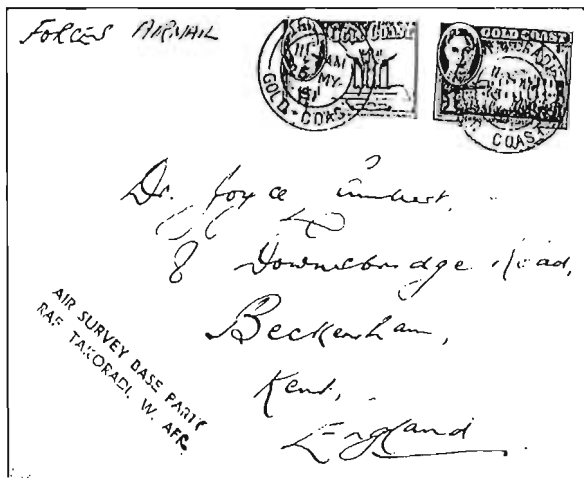 FORCES AIRMAIL
GOLD COAST
GOLD COAST
AM
26 MY
GOLD COAST
COAST
Dr. Joyce
8 Downsbridge Road,
Beckenham,
Kent,
England
AIR SURVEY BASE PARTY
RAF TAKORADI, W. AFR.